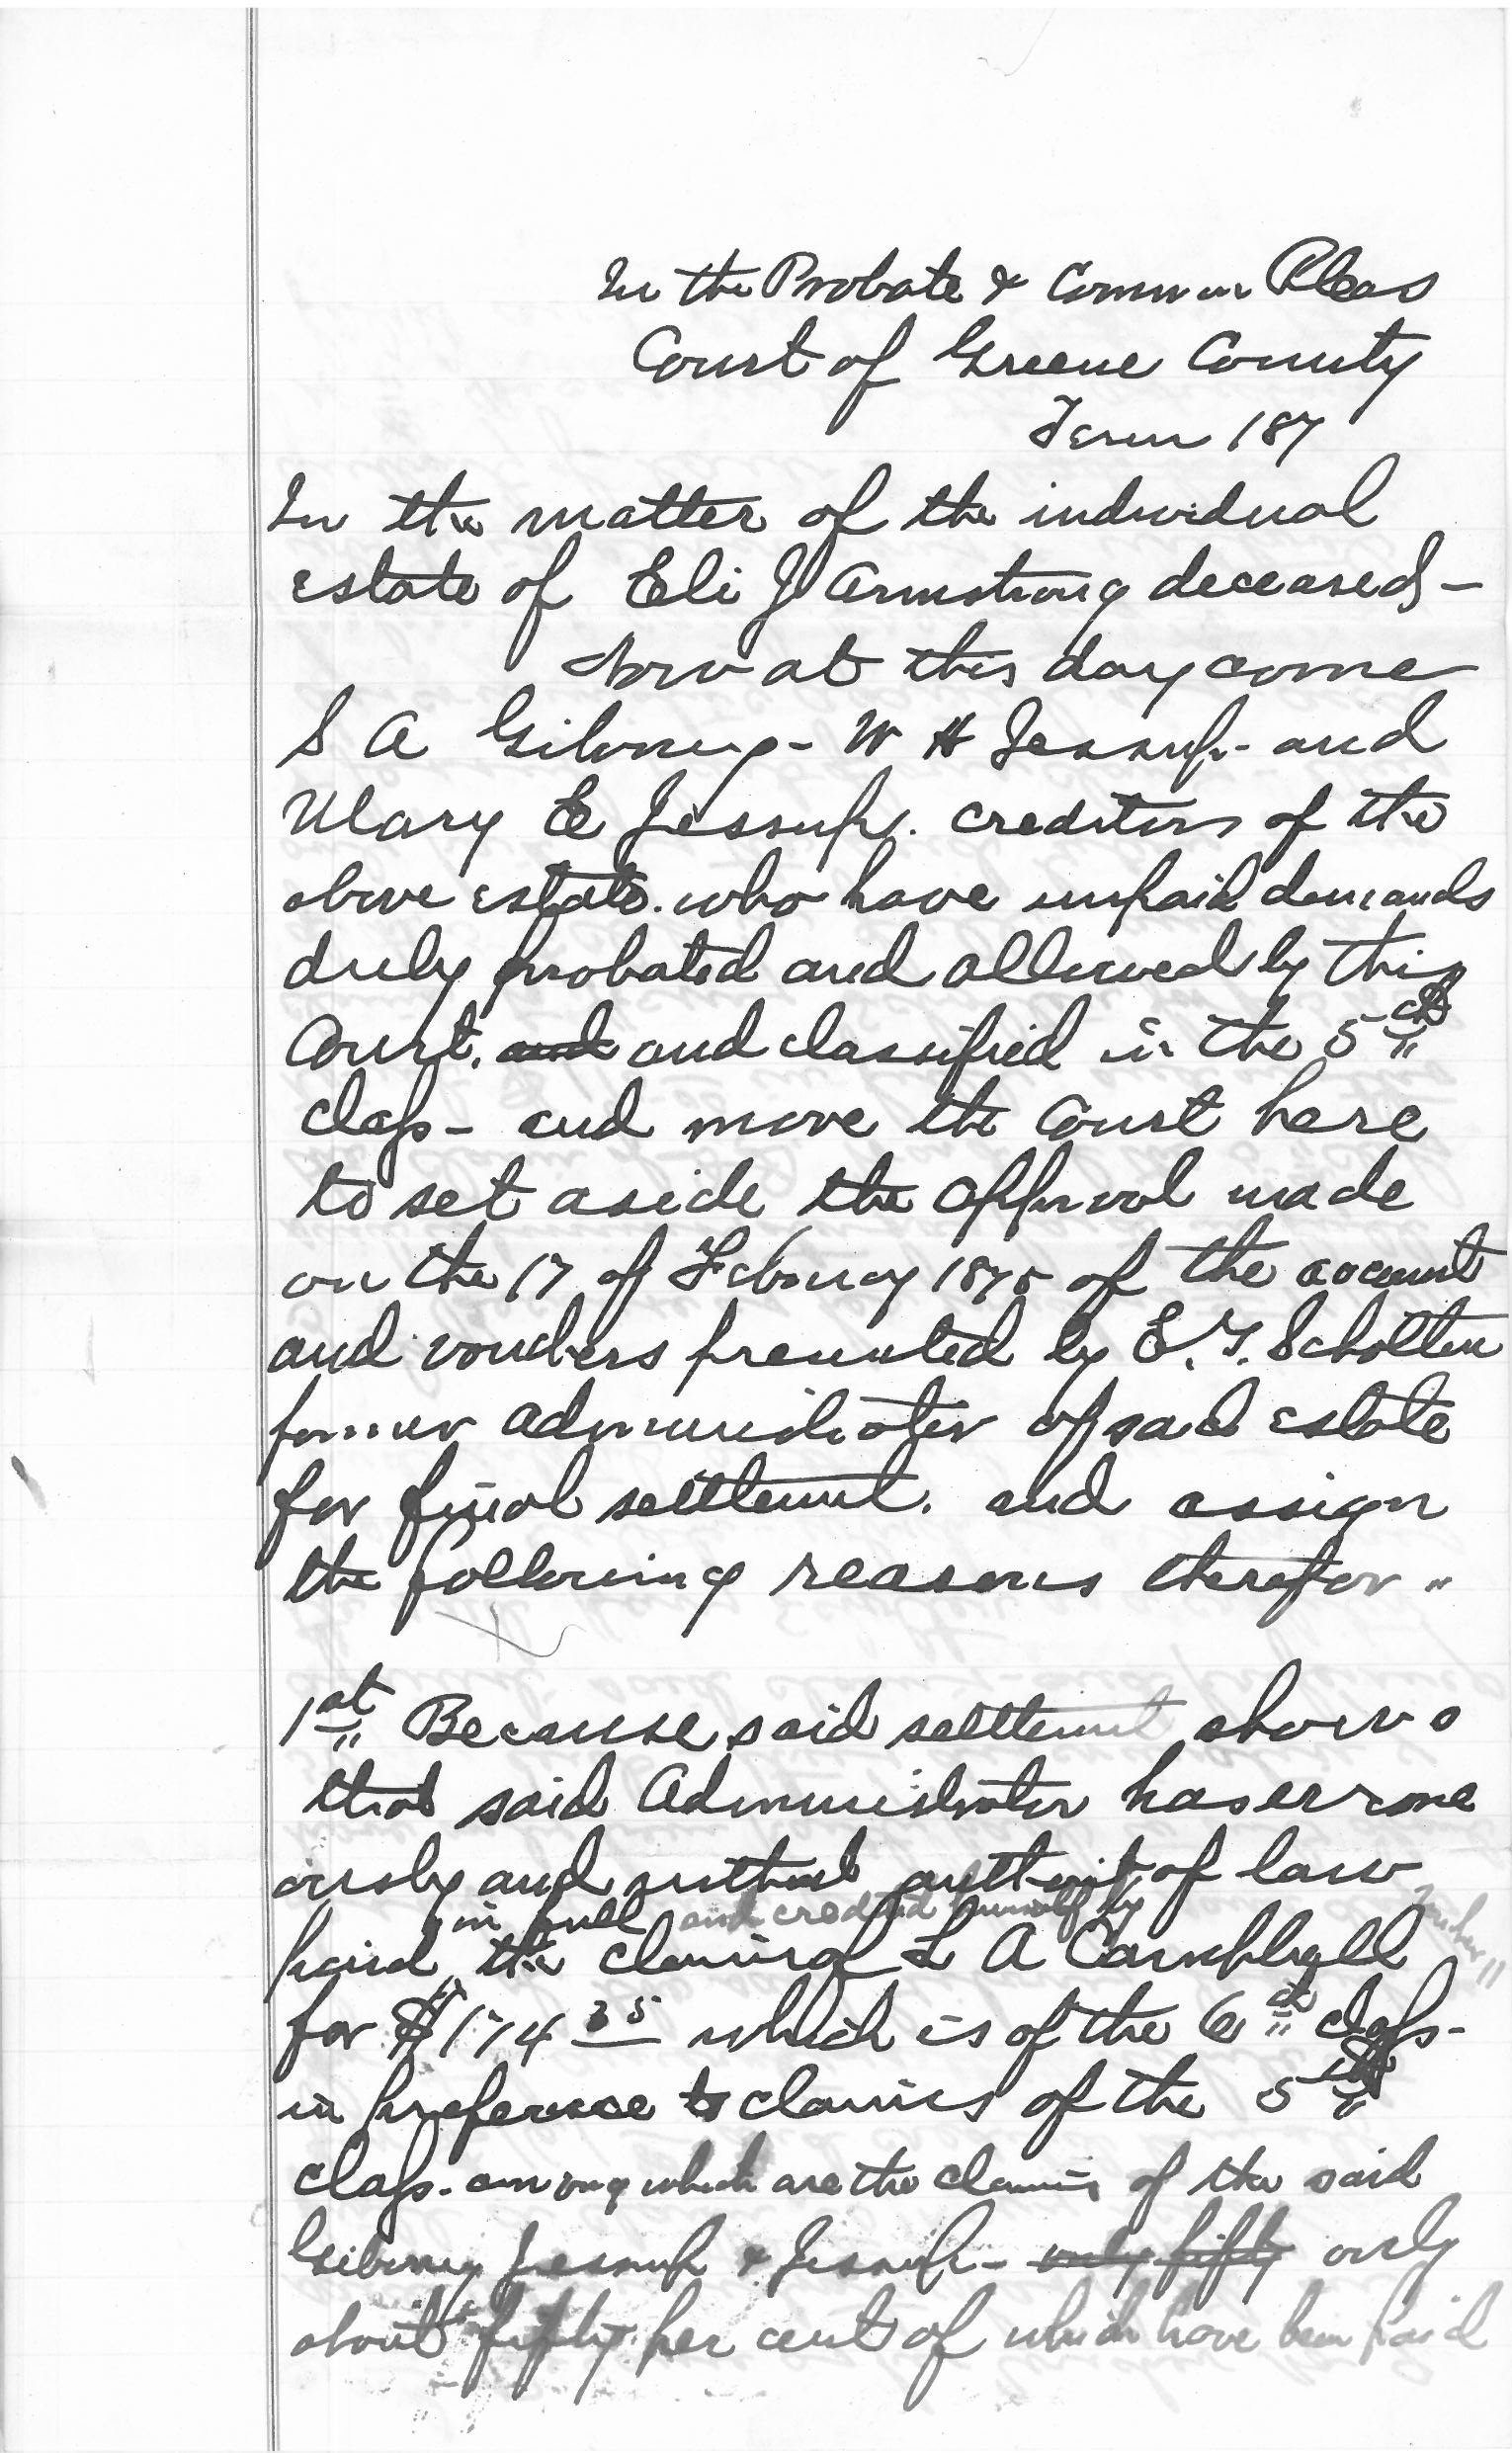 In the Probate & Common Pleas
Court of Greene County
Term 187
In the matter of the individual
estate of Eli J Armstrong deceased -
Now at this day come
S A Giboney - W H Jessup - and
Mary E Jessup. creditors of the
above estate. who have unpaid demands
duly probated and allowed by this
Court. and and classified in the 5th
class - and move the Court here
to set aside the approval made
on the 17 of February 1875 of the account
and vouchers presented by E. T. Scholten
former administrator of said estate
for final settlement. and assign
the following reasons therefor "
1st Because said settlement shows
that said Administrator has errone
ously and without authority of law
in full and credited himself by
paid the claim of L A Campbell
for $174 35 which is of the 6th class -
in preference to claims of the 5th
class - among which are the claims of the said
Gibony Jessup & Jessup - only fifty only
about fifty per cent of which have been paid